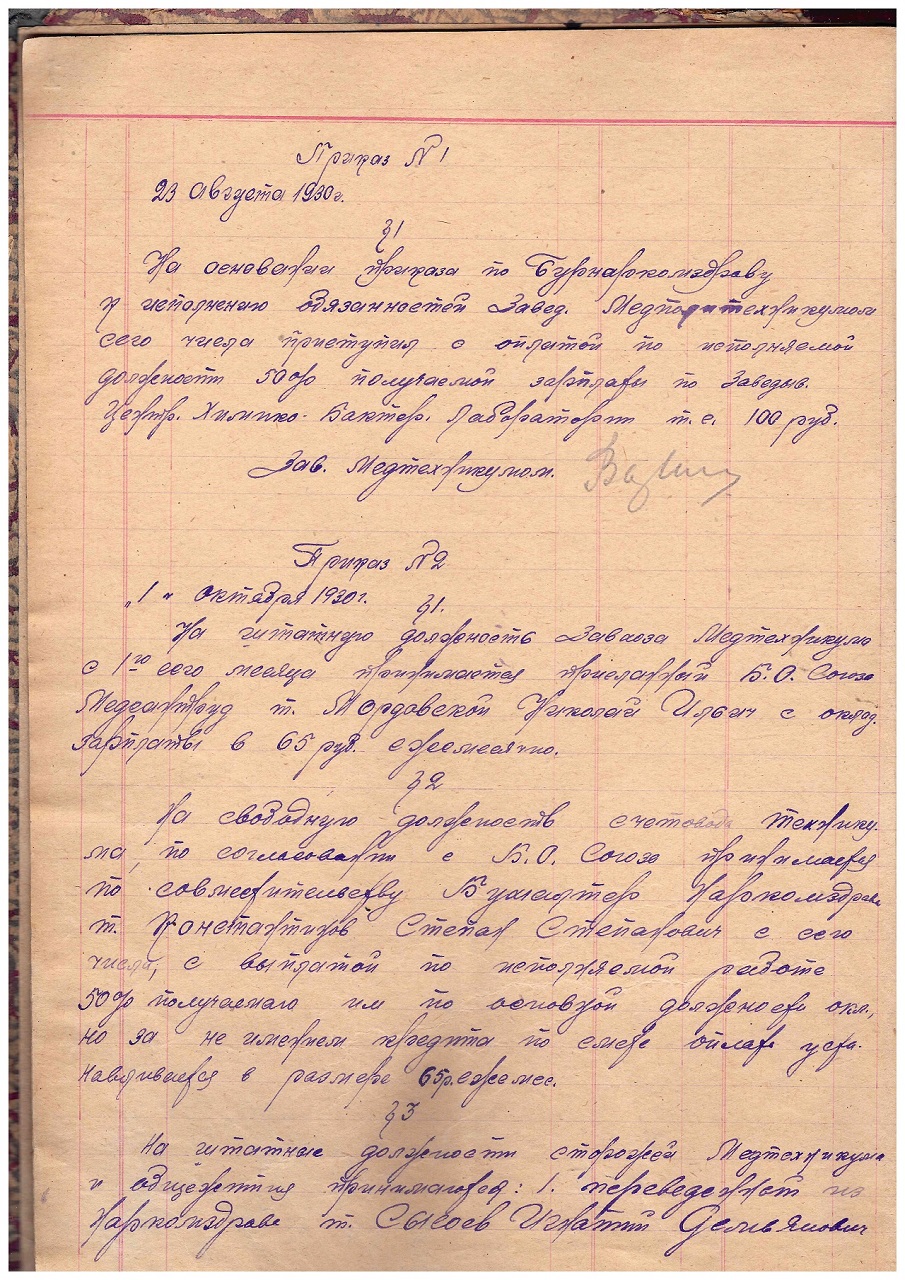 Приказ №1
23 Августа 1930г.
§1
На основании приказа по Бурнаркомздраву
к исполнению обязанностей Завед. Медполитехникумом
сего числа приступил с оплатой по исполняемой
должности 50% получаемой зарплаты по Заведыв.
Центр. Химико-Бактер. Лаборатории т.е. 100 руб.
Зав. Медтехникумом.
Приказ №2
„1" октября 1930г.
§1.
На штатную должность Завхоза Медтехникума
с 1го сего месяца принимается присланный Б.О. Союза
Медсантруд т. Мордовской Николай Ильич с оклад.
зарплаты в 65 руб. ежемесячно.
§2
На свободную должность счетовода Технику-
ма, по согласовании с Б.О. Союза принимается
по совместительству Бухгалтер Наркомздрава
т. Константинов Степан Степанович с сего
числа, с выплатой по исполняемой работе
50% получаемаго им по основной должности окл.,
но за не имением кредита по смете оплата уста-
навливается в размере 65р. ежемес.
§3
На штатные должности сторожей Медтехникума
и общежития принимаются: 1. переведенный из
Наркомздрава т. Сысоев Игнатий Демьянович